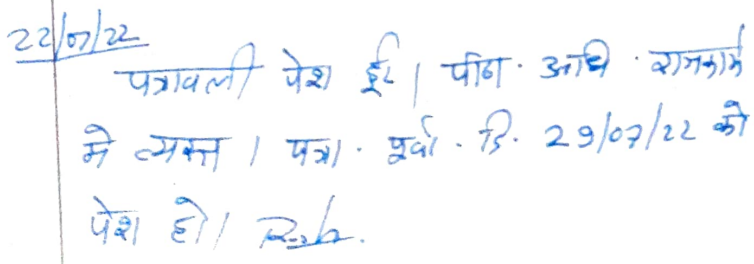 22/07/22
पत्रावली पेश हुई। पीठा. अधि. राजकार्य
मे व्यस्त। पत्रा. पूर्वा. दि. 29/07/22 को
पेश हो।